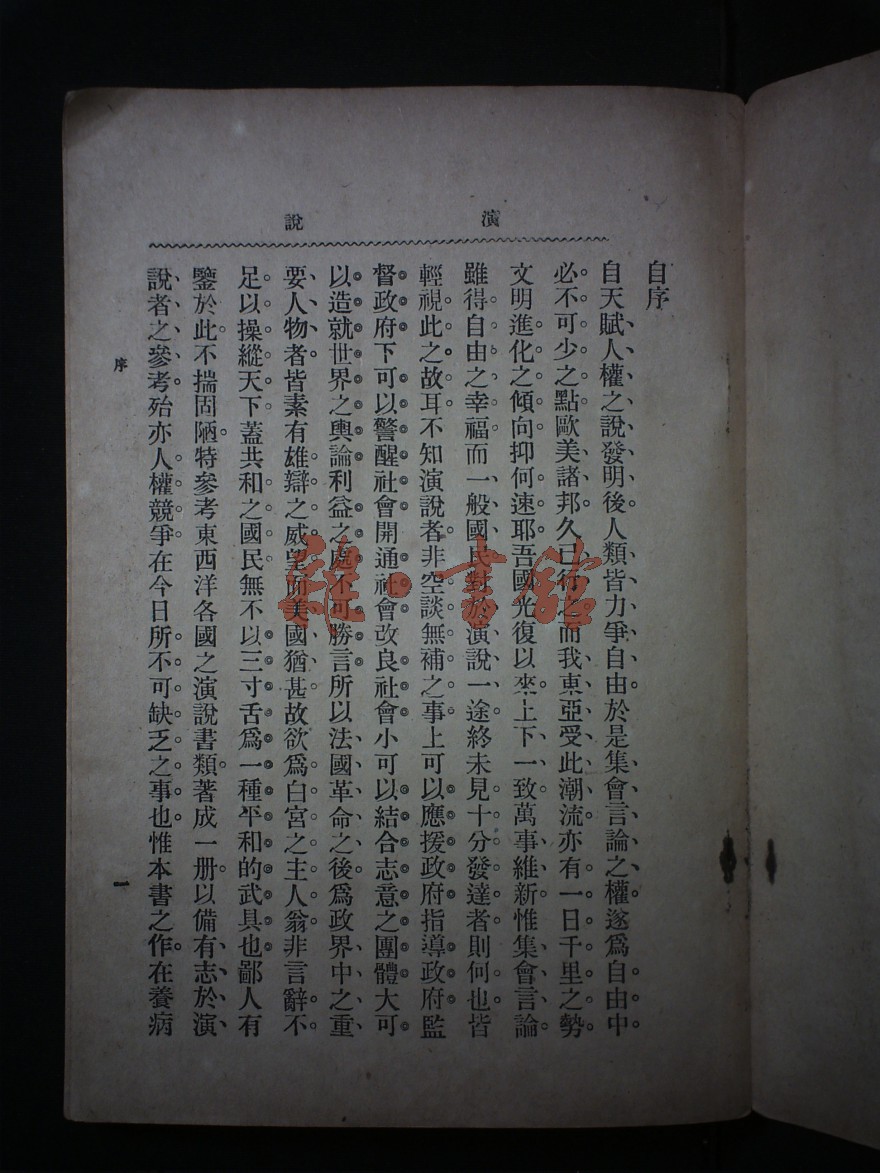 演說
自序
自天賦人權之說發明後人類皆力爭自由於是集會言論之權遂爲自由中
必不可少之點歐美諸邦久已行之而我東亞受此潮流亦有一日千里之勢
文明進化之傾向抑何速耶吾國光復以來上下一致萬事維新惟集會言論
雖得自由之幸福而一般國民對於演說一途終未見十分發達者則何也皆
輕視此之故耳不知演說者非空談無補之事上可以應援政府指導政府監
督政府下可以警醒社會開通社會改良社會小可以結合志意之團體大可
以造就世界之輿論利益之處不可勝言所以法國革命之後爲政界中之重
要人物者皆素有雄辯之威望而美國猶甚故欲爲白宮之主人翁非言辭不
足以操縱天下蓋共和之國民無不以三寸舌爲一種平和的武具也鄙人有
鑒於此不揣固陋特參考東西洋各國之演說書類著成一册以備有志於演
說者之參考殆亦人權競爭在今日所不可缺乏之事也惟本書之作在養病
序
一
雜·書館